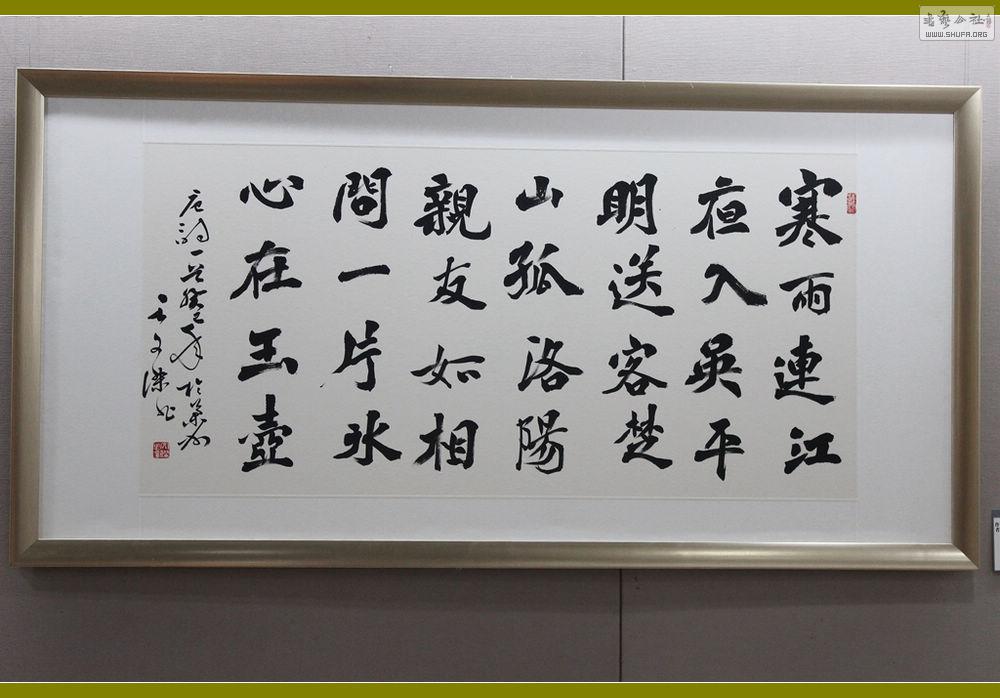 寒雨連江
夜入吳平
明送客楚
山孤洛陽
親友如相
問一片冰
心在玉壺
唐詩一首
書藝公社
WWW.SHUFA.ORG